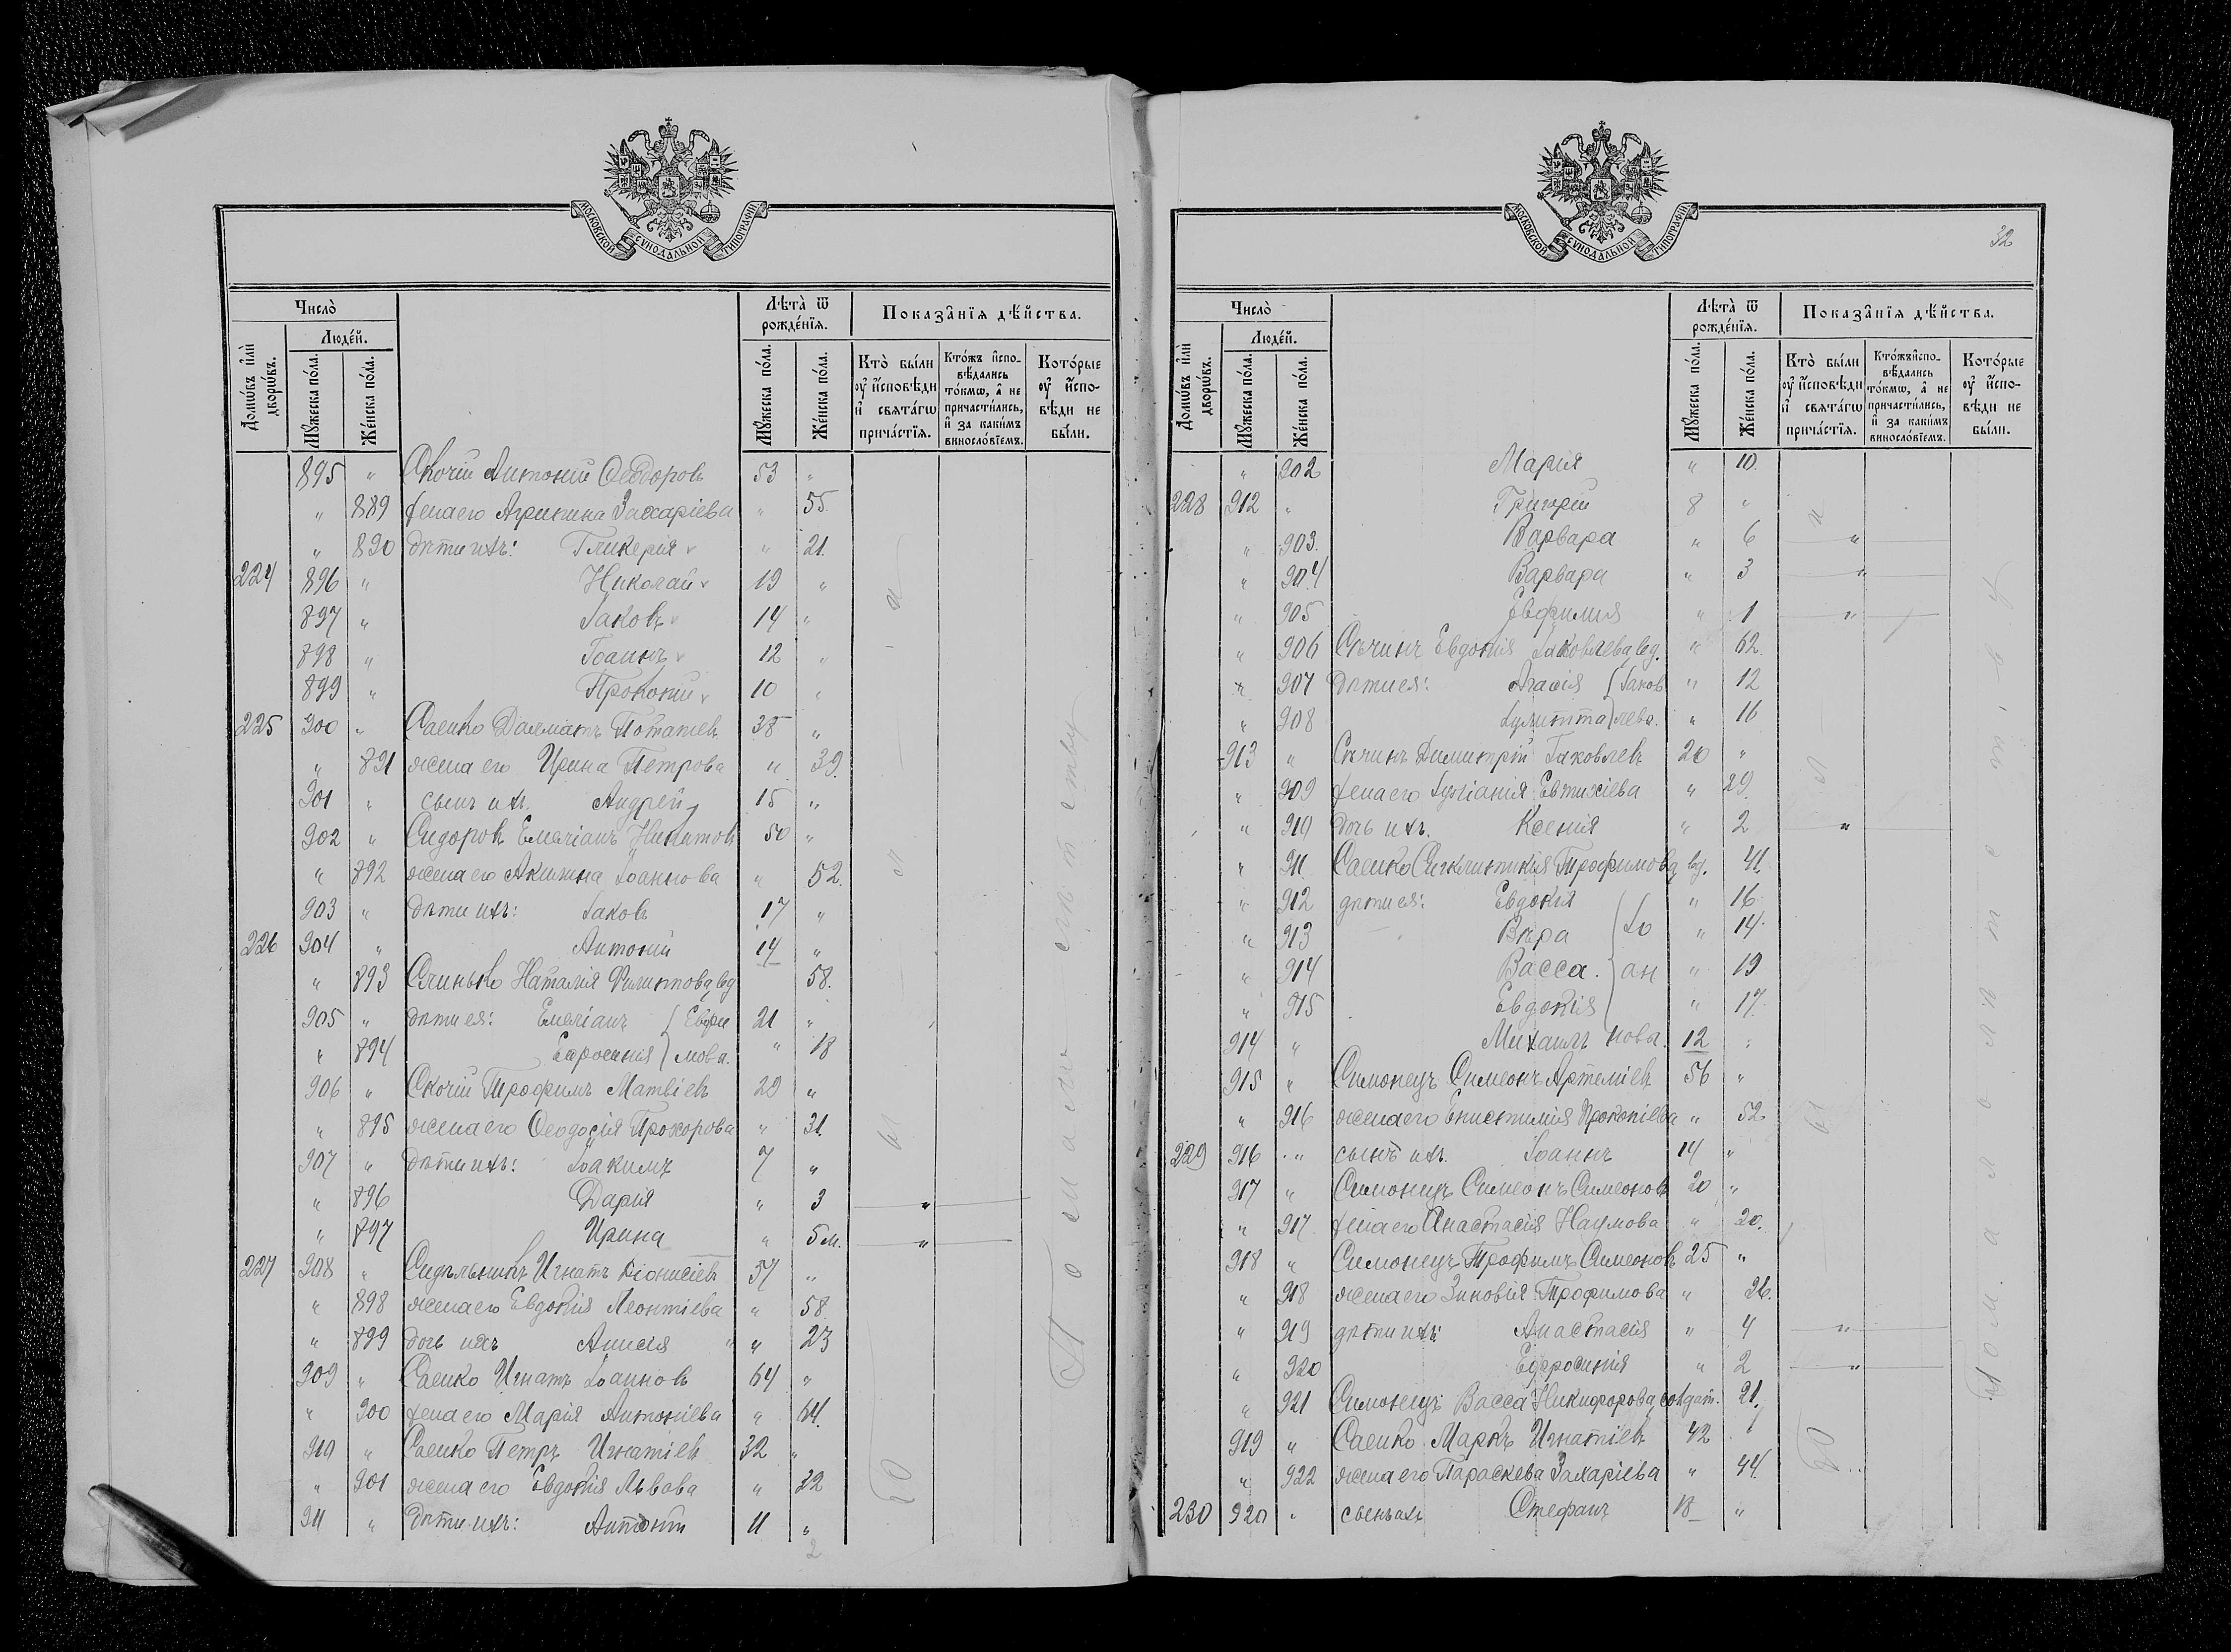 МОСКОВСКОЙ СѴНОДАЛЬНОЙ ТИПОГРАФІИ
Число̀
Людей.
Домѡвъ или дворѡвъ.
Мꙋжеска пола.
Женска пола.
Лѣта̀ ѿ рожденїѧ.
Мꙋжеска пола.
Женска пола.
Показанїѧ дѣйства.
Кто̀ были оу исповѣди и свѧтагѡ причастїѧ.
Ктожъ исповѣдались токмѡ, а не причастились, и за какимъ винословїемъ.
Которые оу исповѣди не были.
895 " Скочій Антоній Ѳеодоровъ 53 "
" 889 жена его Агрипина Захаріева " 55.
" 890 дѣти ихъ: Гликерія " 21.
224 896 " Николай 19 "
897 " Іаковъ 14 "
898 " Іоаннъ 12 "
899 " Прокопій 10 "
225 900 " Саенко Далматъ Потапіевъ 38 "
" 891 жена его Ирина Петрова " 39.
901 " сынъ ихъ. Андрей 15 "
902 " Сидоровъ Емеліанъ Никитовъ 50 "
" 892 жена его Акилина Іоаннова " 52.
903 " дѣти ихъ: Іаковъ 17 "
226 904 " Антоній 14 "
" 893 Слинько Наталія Филиппова вд 58.
905 " дѣти ея: Емеліанъ Евфи 21 "
" 894 Евросинія мова. " 18
906 " Скочій Трофимъ Матвіевъ 29 "
" 895 жена его Ѳеодосія Прохорова " 31.
907 " дѣти ихъ: Іоакимъ 7 "
" 896 Дарія " 3 "
" 897 Ирина " 5 м. "
227 908 " Сидѣльникъ Игнатъ Діонисіевъ 57 "
" 898 жена его Евдокія Леонтіева " 58
" 899 дочь ихъ Анисія " 23
909 " Саенко Игнатъ Іоанновъ 64 "
" 900 жена его Марія Антоніева " 64.
910 " Саенко Петръ Игнатіевъ 32 "
" 901 жена его Евдокія Львова " 32
911 " дѣти ихъ: Антоній 11 "
2
32
МОСКОВСКОЙ СѴНОДАЛЬНОЙ ТИПОГРАФІИ
Число̀
Людей.
Домѡвъ или дворѡвъ.
Мꙋжеска пола.
Женска пола.
Лѣта̀ ѿ рожденїѧ.
Мꙋжеска пола.
Женска пола.
Показанїѧ дѣйства.
Кто̀ были оу исповѣди и свѧтагѡ причастїѧ.
Ктожъ исповѣдались токмѡ, а не причастились, и за какимъ винословїемъ.
Которые оу исповѣди не были.
" 902 Марія " 10.
228 912 " Григорій 8 "
" 903. Варвара " 6 "
" 904 Варвара " 3 "
" 905 Евфимія " 1 "
" 906 Сѣчинъ Евдокія Іаковлева вд. " 62.
" 907 дѣти ея: Агаѳія Іаков " 12
" 908 Іулитта лева. " 16
913 " Сѣчинъ Димитрій Іаковлевъ 20 "
" 909 жена его Іуліанія Евтихіева " 29.
" 910 дочь ихъ. Ксенія " 2 "
" 911 Саенко Сигклитикія Трофимова вд. 41.
" 912 дѣти ея: Евдокія " 16
" 913 Вѣра Іо " 14.
" 914 Васса. ан " 19
" 915 Евдокія " 17.
914 " Михаилъ нова. 12 "
915 " Симонецъ Симеонъ Артеміевъ 56 "
" 916 жена его Епистимія Прокопіева " 52.
229 916 " сынъ ихъ. Іоаннъ 14 "
917 " Симонецъ Симеонъ Симеоновъ 20 "
" 917 жена его Анастасія Наумова " 20.
918 " Симонецъ Трофимъ Симеоновъ 25 "
" 918 жена его Зиновія Трофимова " 26.
" 919 дѣти ихъ: Анастасія " 4 "
" 920 Ефросинія " 2 "
" 921 Симонецъ Васса Никифорова солдат. 21.
919 " Саенко Маркъ Игнатіевъ 42 "
" 922 жена его Параскева Захаріева " 44.
230 920 " сынъ ихъ Стефанъ 18 "